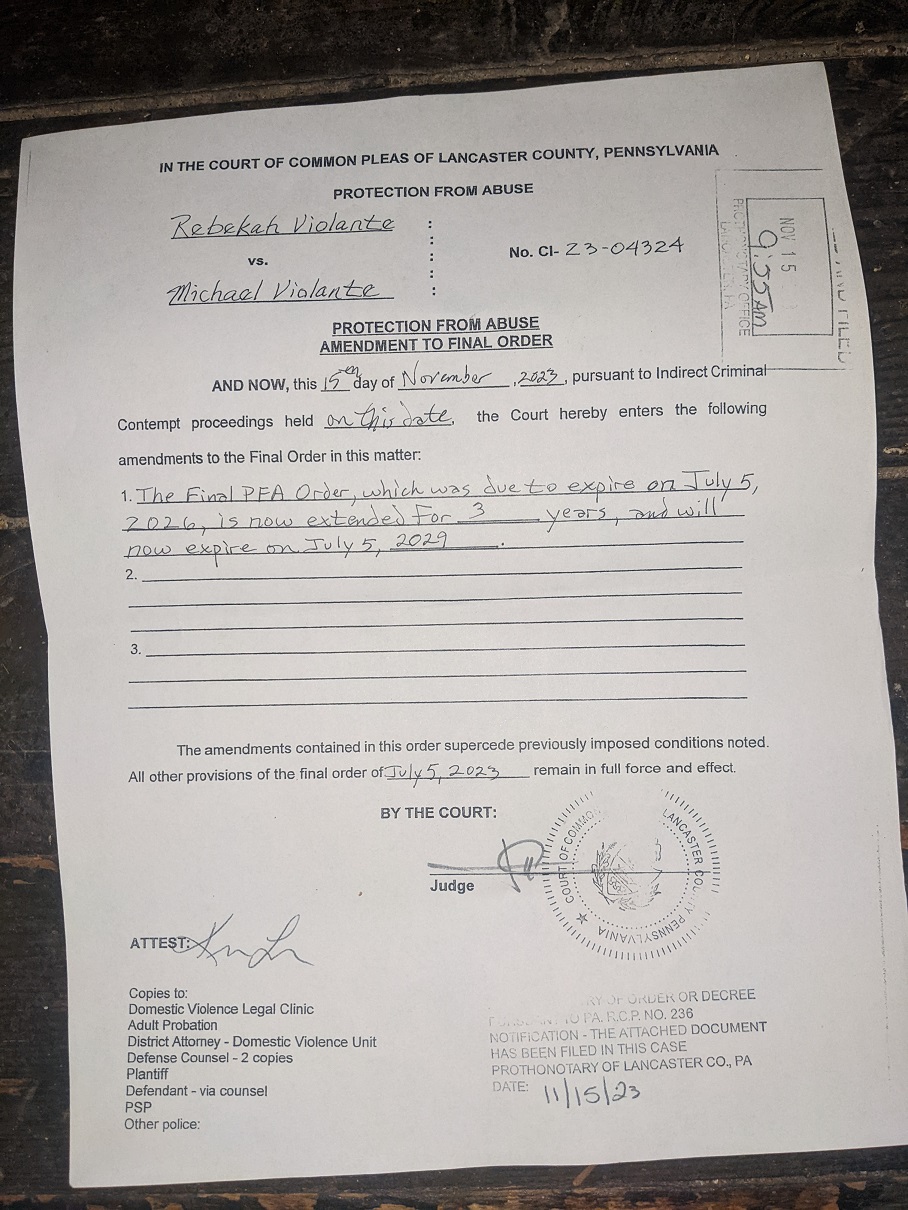 IN THE COURT OF COMMON PLEAS OF LANCASTER COUNTY, PENNSYLVANIA
PROTECTION FROM ABUSE
Rebekah Violante
vs.
No. CI- 23-04324
Michael Violante
NOV 15
9:55 AM
PROTHONOTARY OFFICE
FILED
PROTECTION FROM ABUSE
AMENDMENT TO FINAL ORDER
AND NOW, this 15th day of November, 2023, pursuant to Indirect Criminal
Contempt proceedings held on this date, the Court hereby enters the following
amendments to the Final Order in this matter:
1. The Final PFA Order, which was due to expire on July 5,
2026, is now extended for 3 years, and will
now expire on July 5, 2029.
2.
3.
The amendments contained in this order supercede previously imposed conditions noted.
All other provisions of the final order of July 5, 2023 remain in full force and effect.
BY THE COURT:
Judge
COURT OF COMMO
LANCASTER COUNTY PENNSYLVANIA
ATTEST:
Copies to:
Domestic Violence Legal Clinic
Adult Probation
District Attorney - Domestic Violence Unit
Defense Counsel - 2 copies
Plaintiff
Defendant - via counsel
PSP
Other police:
RY OF ORDER OR DECREE
TO PA. R.C.P. NO. 236
NOTIFICATION - THE ATTACHED DOCUMENT
HAS BEEN FILED IN THIS CASE
PROTHONOTARY OF LANCASTER CO., PA
DATE: 11/15/23